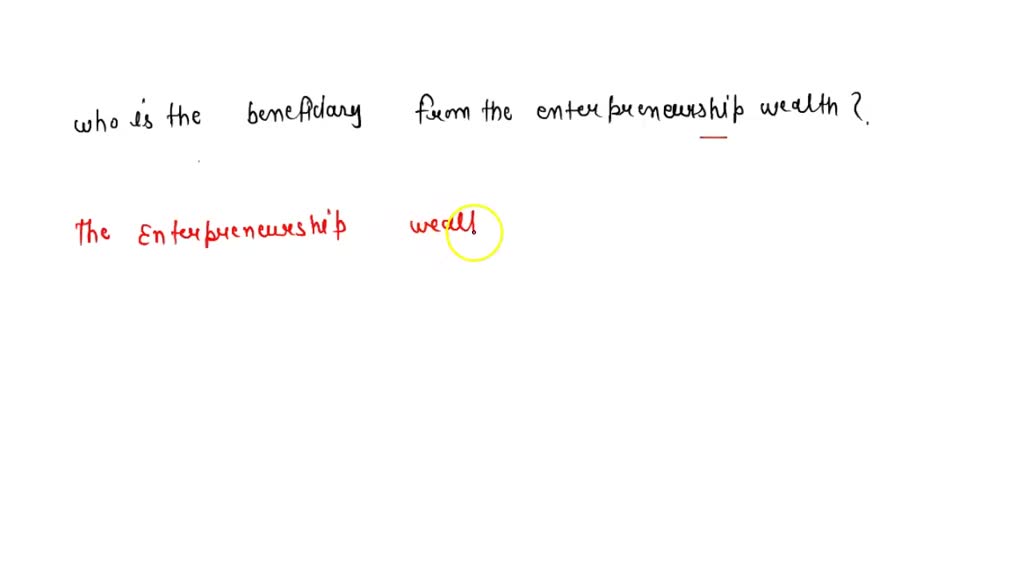 who is the beneficiary from the enterpreneurship wealth ?.
The Enterpreneurship wealt